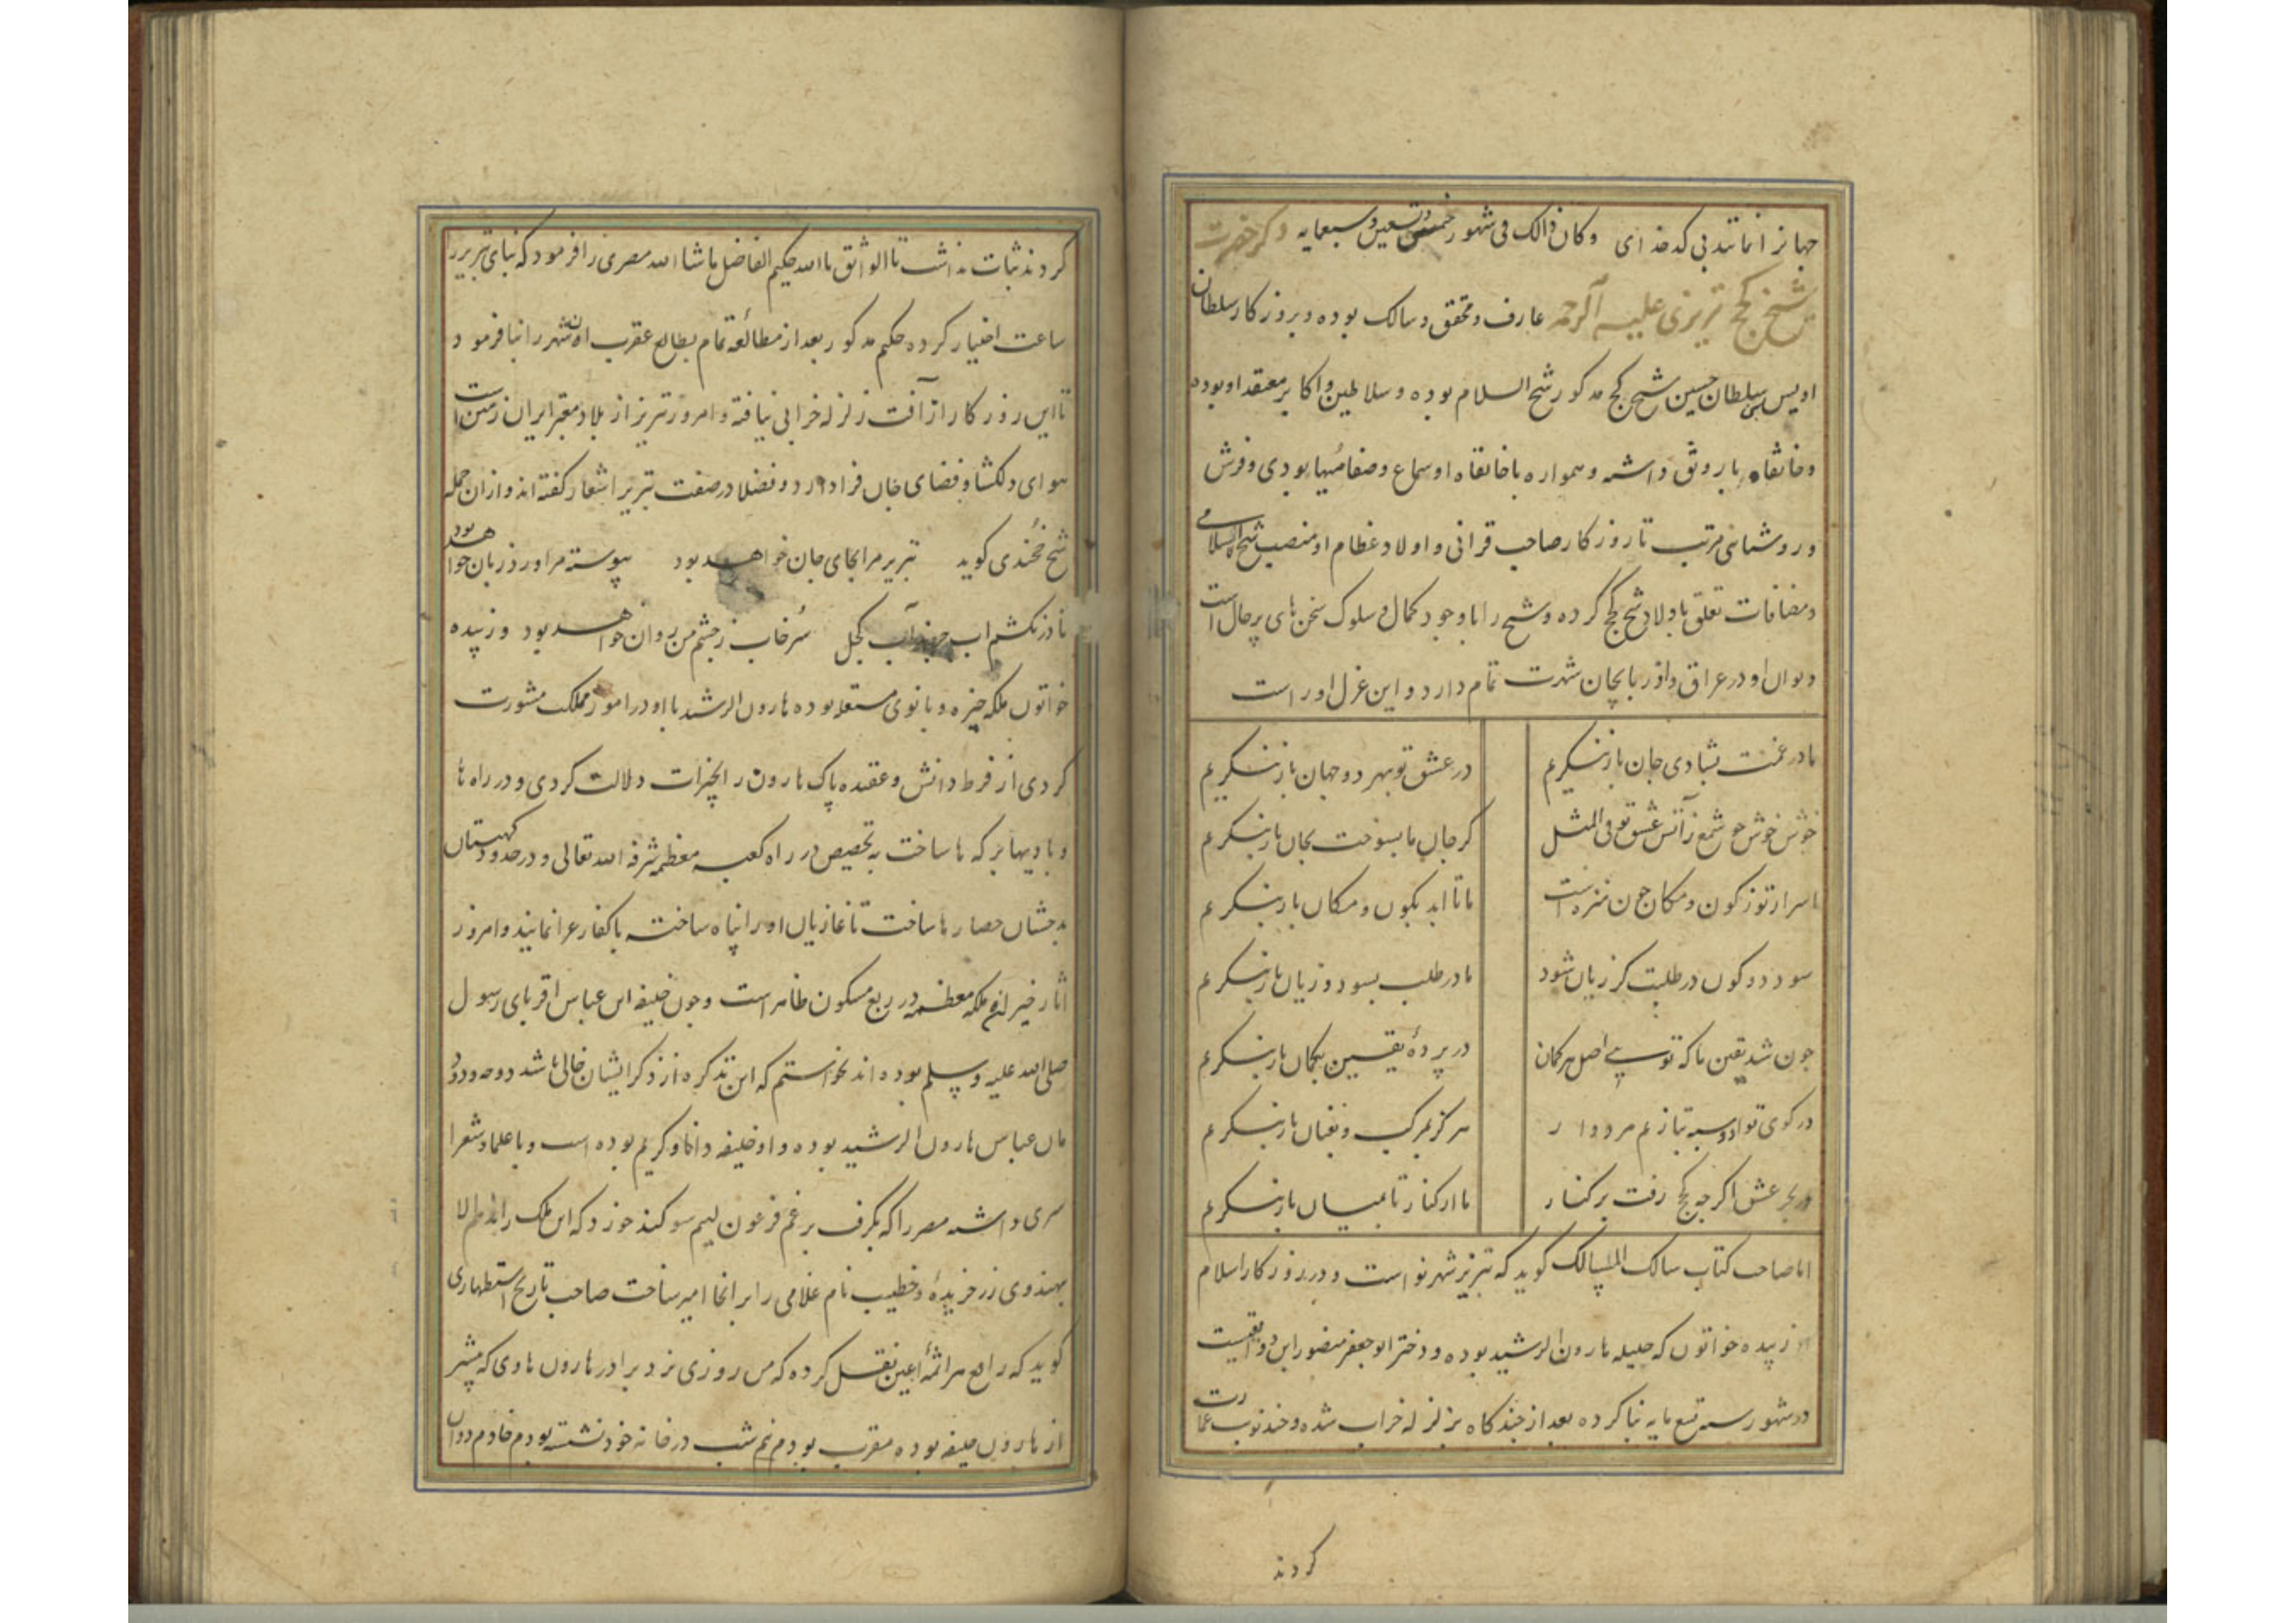 جهانرا نماندبی کدخدای وکان ذالک فی شهور خمس و تسعین وسبعمایه ذکر حضرت
شیخ کجج تبریزی علیه الرحمه عارف و محقق و سالک بوده و بروزکار سلطان
اویس و سلطان حسین شیخ کجج مذکور شیخ السلام بوده و سلاطین و اکابر معتقد او بوده
و خانقاه با رونق داشته و همواره با خانقاه او سماع و صفا مهیا بودی و فرش
و روشنائی مرتب تا روزکار صاحب قرانی و اولاد عظام او منصب شیخ الاسلامی
و مضافات تعلق باولاد شیخ کجج کرده و شیخ را با وجود کمال و سلوک سخن های پرحال است
دیوان او در عراق و اذربایجان شهرت تمام دارد و این غزل اوراست
ما در غمت بشادی جان بازننکریم در عشق تو بهر دو جهان بازننکریم
خوش خوش جو شمع زآتش عشق تو فی المثل کر جان ما بسوخت بجان بازننکریم
اسرار تو ز کون و مکان جون منزه است ما تا ابد بکون و مکان بازننکریم
سود دو کون در طلبت کر زیان شود ما در طلب بسود و زیان بازننکریم
جون شد یقین ما که تویی اصل هر کمان در پردهٔ یقین بکمان بازننکریم
در کوی تو دو اسبه بتازیم مردوار هرکز بمرکب و بعنان بازننکریم
در بحر عشق اکر جه کجج رفت بر کنار ما از کنار تا بمیان بازننکریم
اما صاحب کتاب سالک المسالک کوید که تبریز شهر نو است و در روزکار اسلام
زبیده خواتون که حلیله هارون الرشید بوده و دختر ابوجعفر منصور ابن دوانقیست
در شهور سنه تسع مایه بنا کرده بعد از جندکاه بزلزله خراب شده و جند نوبت عمارت
کردند
کردند ثبات نداشت تا الواثق بالله حکیم الفاضل ماشاالله مصری را فرمود که بنای تبریز را
ساعت اختیار کرده حکیم مذکور بعد از مطالعه تمام بطالع عقرب ان شهر را بنا فرمود و
تا این روزکار از آفت زلزله خرابی نیافته و امروز تبریز از بلاد معتبر ایران زمین است
هوای دلکشا و فضای جان فزا دارد و فضلا در صفت تبریز اشعار کفته اند و ازان جمله
شیخ خجندی کوید تبریز مرا بجای جان خواهد بود پیوسته مرا ورد زبان خواهد بود
تا درنکشم اب جرنداب کجل سرخاب ز چشم من روان خواهد بود و زبیده
خواتون ملکه خیره و بانوی مستعده بوده هارون الرشید با او در امور مملکت مشورت
کردی از فرط دانش و عقیده پاک هارون را بخیرات دلالت کردی و در راه ها
و بادیها برکه ها ساخت به تخصیص در راه کعبه معظمه شرفه الله تعالی و در حدود کهستان
بدخشان حصارها ساخت تا غازیان اورا پناه ساخته با کفار غزا نمایند و امروز
اثار خیر ان ملکه معظمه در ربع مسکون ظاهر است و جون خلیفه ابن عباس اقربای رسول
صلی الله علیه وسلم بوده اند نخواستم که این تذکره از ذکر ایشان خالی باشد
عباس هارون الرشید بوده و او خلیفه دانا و کریم بوده است و با علما و شعرا
سری داشته مصر را که بکرفت برغم فرعون لییم سوکند خورد که این ملک را ندهم الا
بهندوی زرخریده و خطیب نام غلامی را بر انجا امیر ساخت صاحب تاریخ استظهاری
کوید که نقل کرده که من روزی نزد برادر هارون هادی که پیشتر
از هارون خلیفه بوده مقرب بودم نیم شب در خانه خود نشسته بودم خادم دوان